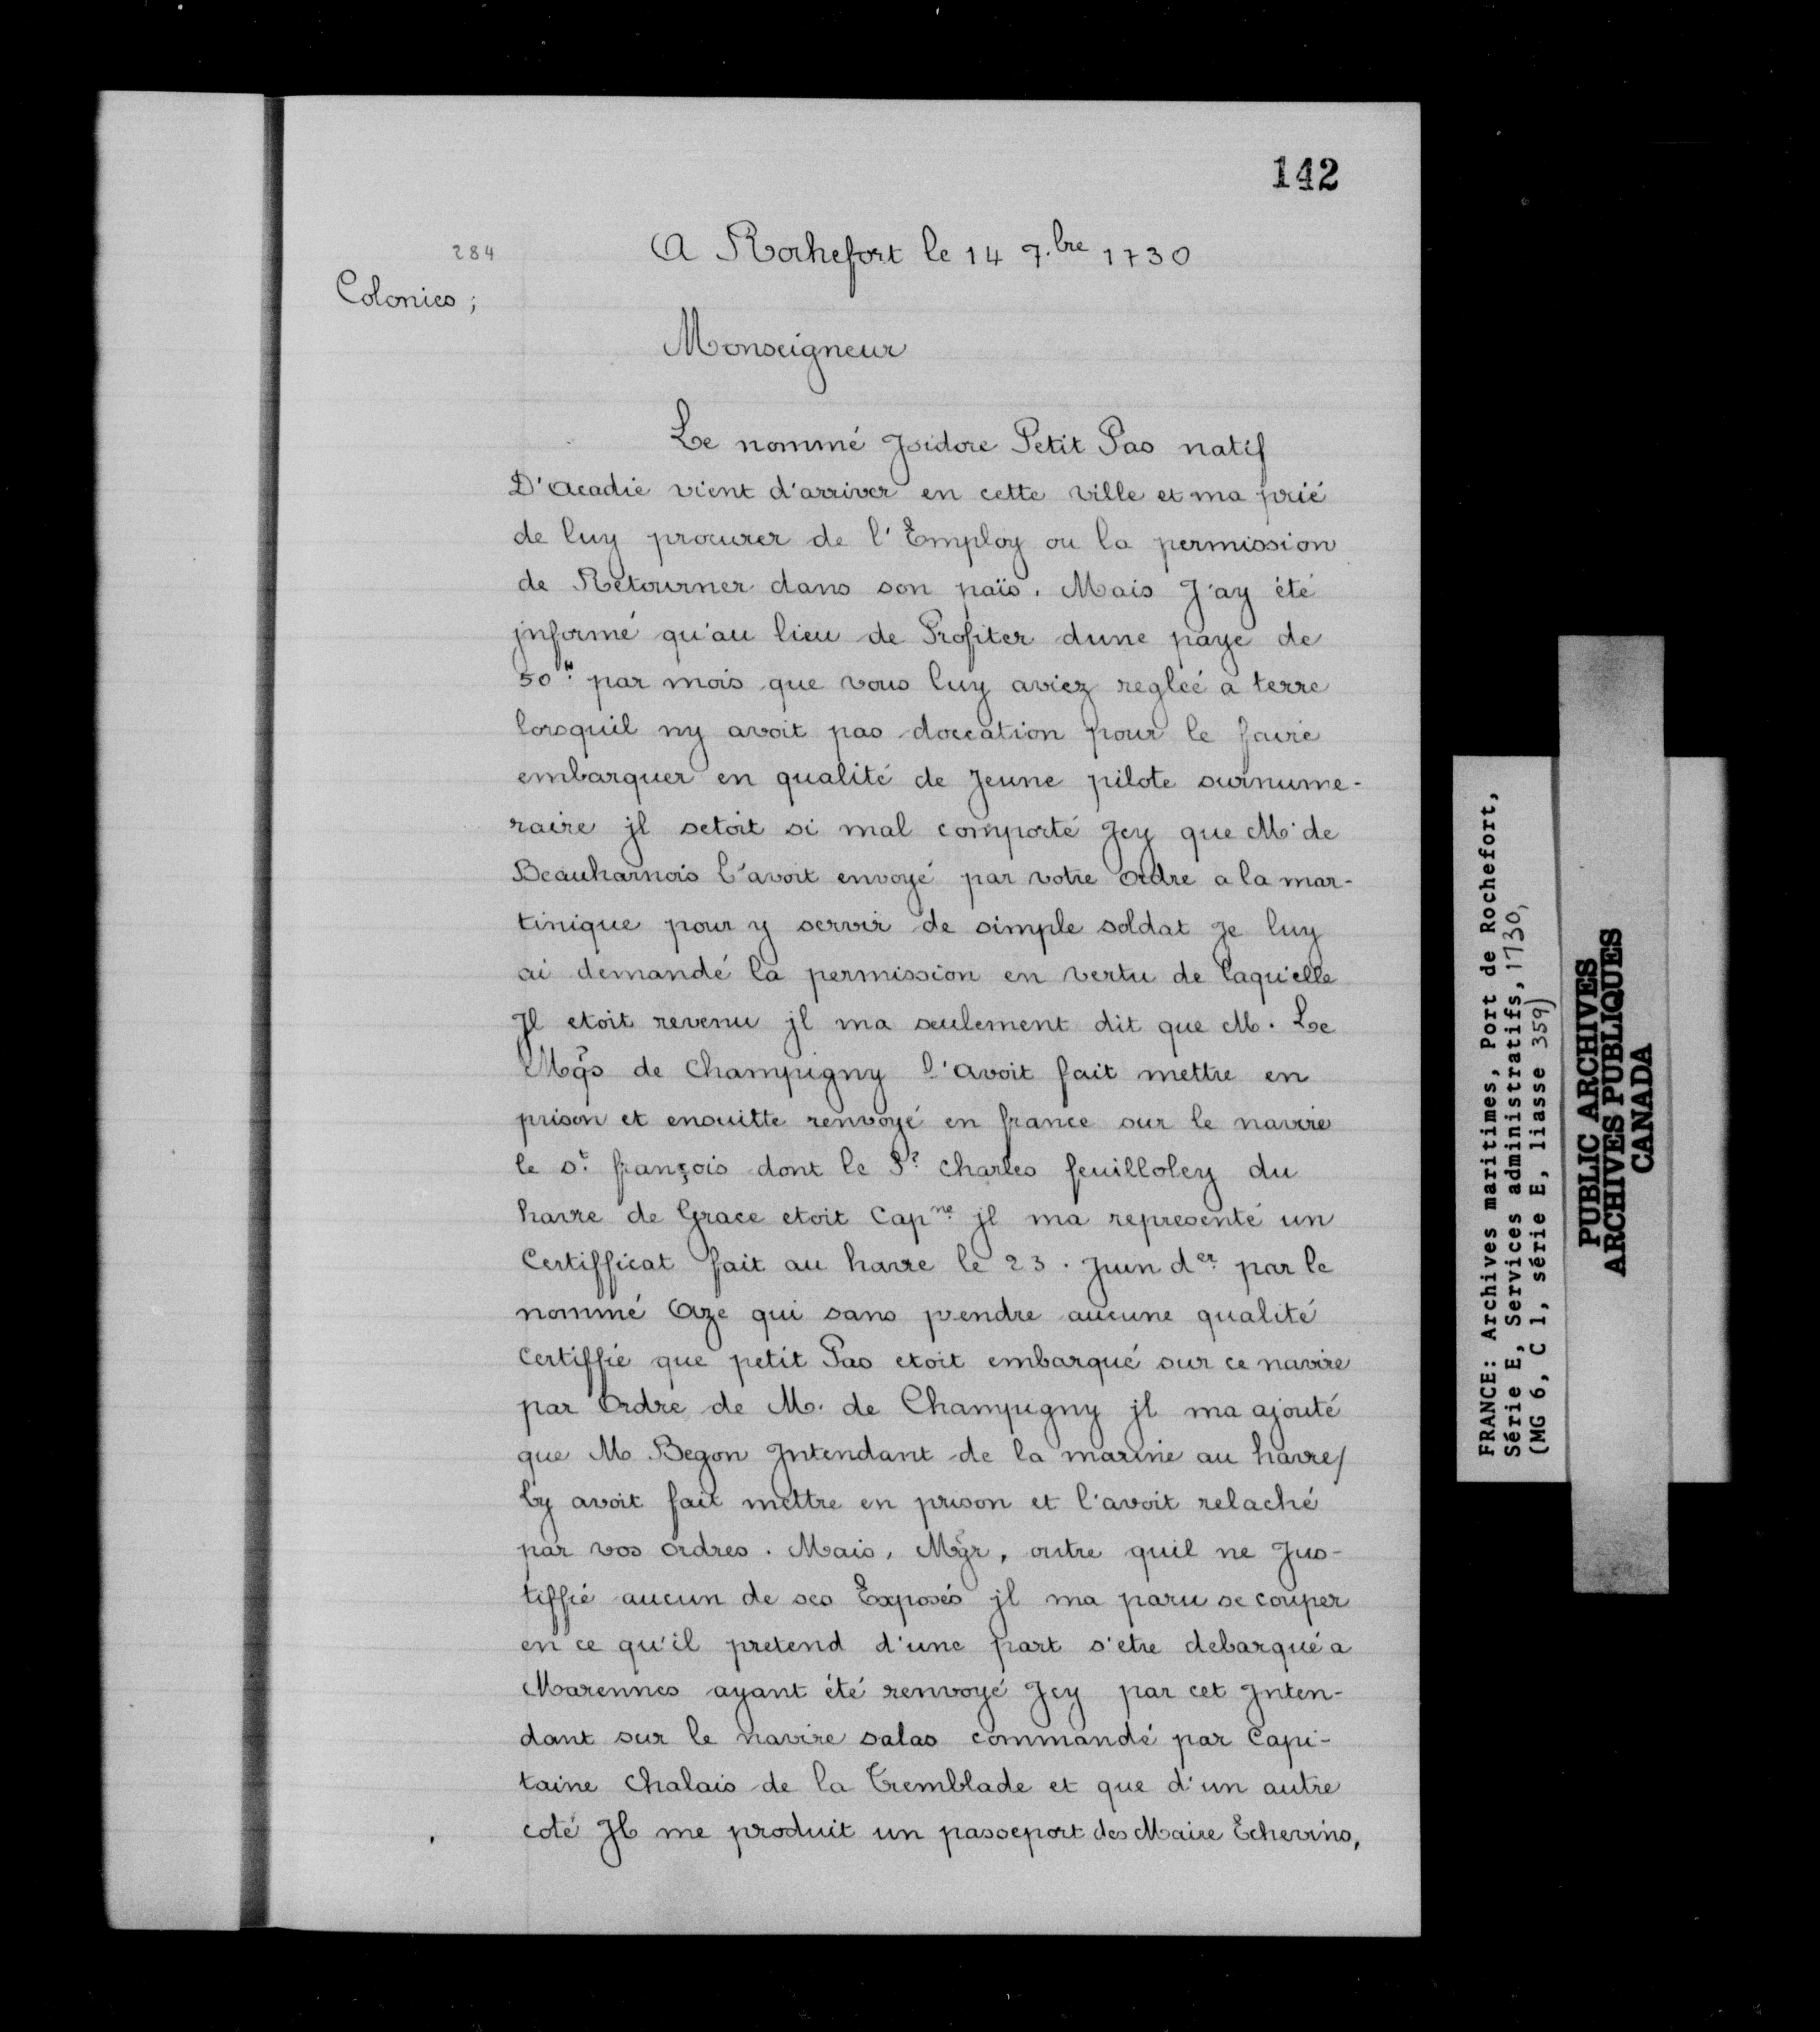 142
284
A Rochefort le 14 7.bre 1730
Colonies;
Monseigneur
Le nommé Jsidore Petit Pas natif
D'Acadie vient d'arriver en cette ville et ma prié
de luy procurer de l'Employ ou la permission
de Retourner dans son païs. Mais J'ay été
jnformé qu'au lieu de Profiter dune paye de
50# par mois que vous luy aviez regleé a terre
lorsquil ny avoit pas doccation pour le faire
embarquer en qualité de Jeune pilote surnume-
raire jl setoit si mal comporté Jcy que M. de
Beauharnois l'avoit envoyé par votre Ordre a la mar-
tinique pour y servir de simple soldat Je luy
ai demandé la permission en vertu de laquelle
Jl etoit revenu jl ma seulement dit que M. Le
Mqs de Champigny l'avoit fait mettre en
prison et ensuitte renvoyé en france sur le navire
le st. françois dont le Sr. Charles feuilloley du
havre de Grace etoit Capne. jl ma representé un
Certifficat fait au havre le 23. Juin der. par le
nommé Aze qui sans prendre aucune qualité
Certiffie que petit Pas etoit embarqué sur ce navire
par Ordre de M. de Champigny jl ma ajouté
que M Begon Jntendant de la marine au havre/
l'y avoit fait mettre en prison et l'avoit relaché
par vos ordres. Mais, Mgr, outre quil ne Jus-
tiffié aucun de ses Exposés jl ma paru se couper
en ce qu'il pretend d'une part s'etre debarqué a
Marennes ayant été renvoyé Jcy par cet Jnten-
dant sur le navire salas commandé par Capi-
taine Chalais de la Tremblade et que d'un autre
coté Jl me produit un passeport des Maire Echevins,
FRANCE: Archives maritimes, Port de Rochefort,
Série E, Services administratifs, 1730,
(MG 6, C 1, série E, liasse 359)
PUBLIC ARCHIVES
ARCHIVES PUBLIQUES
CANADA